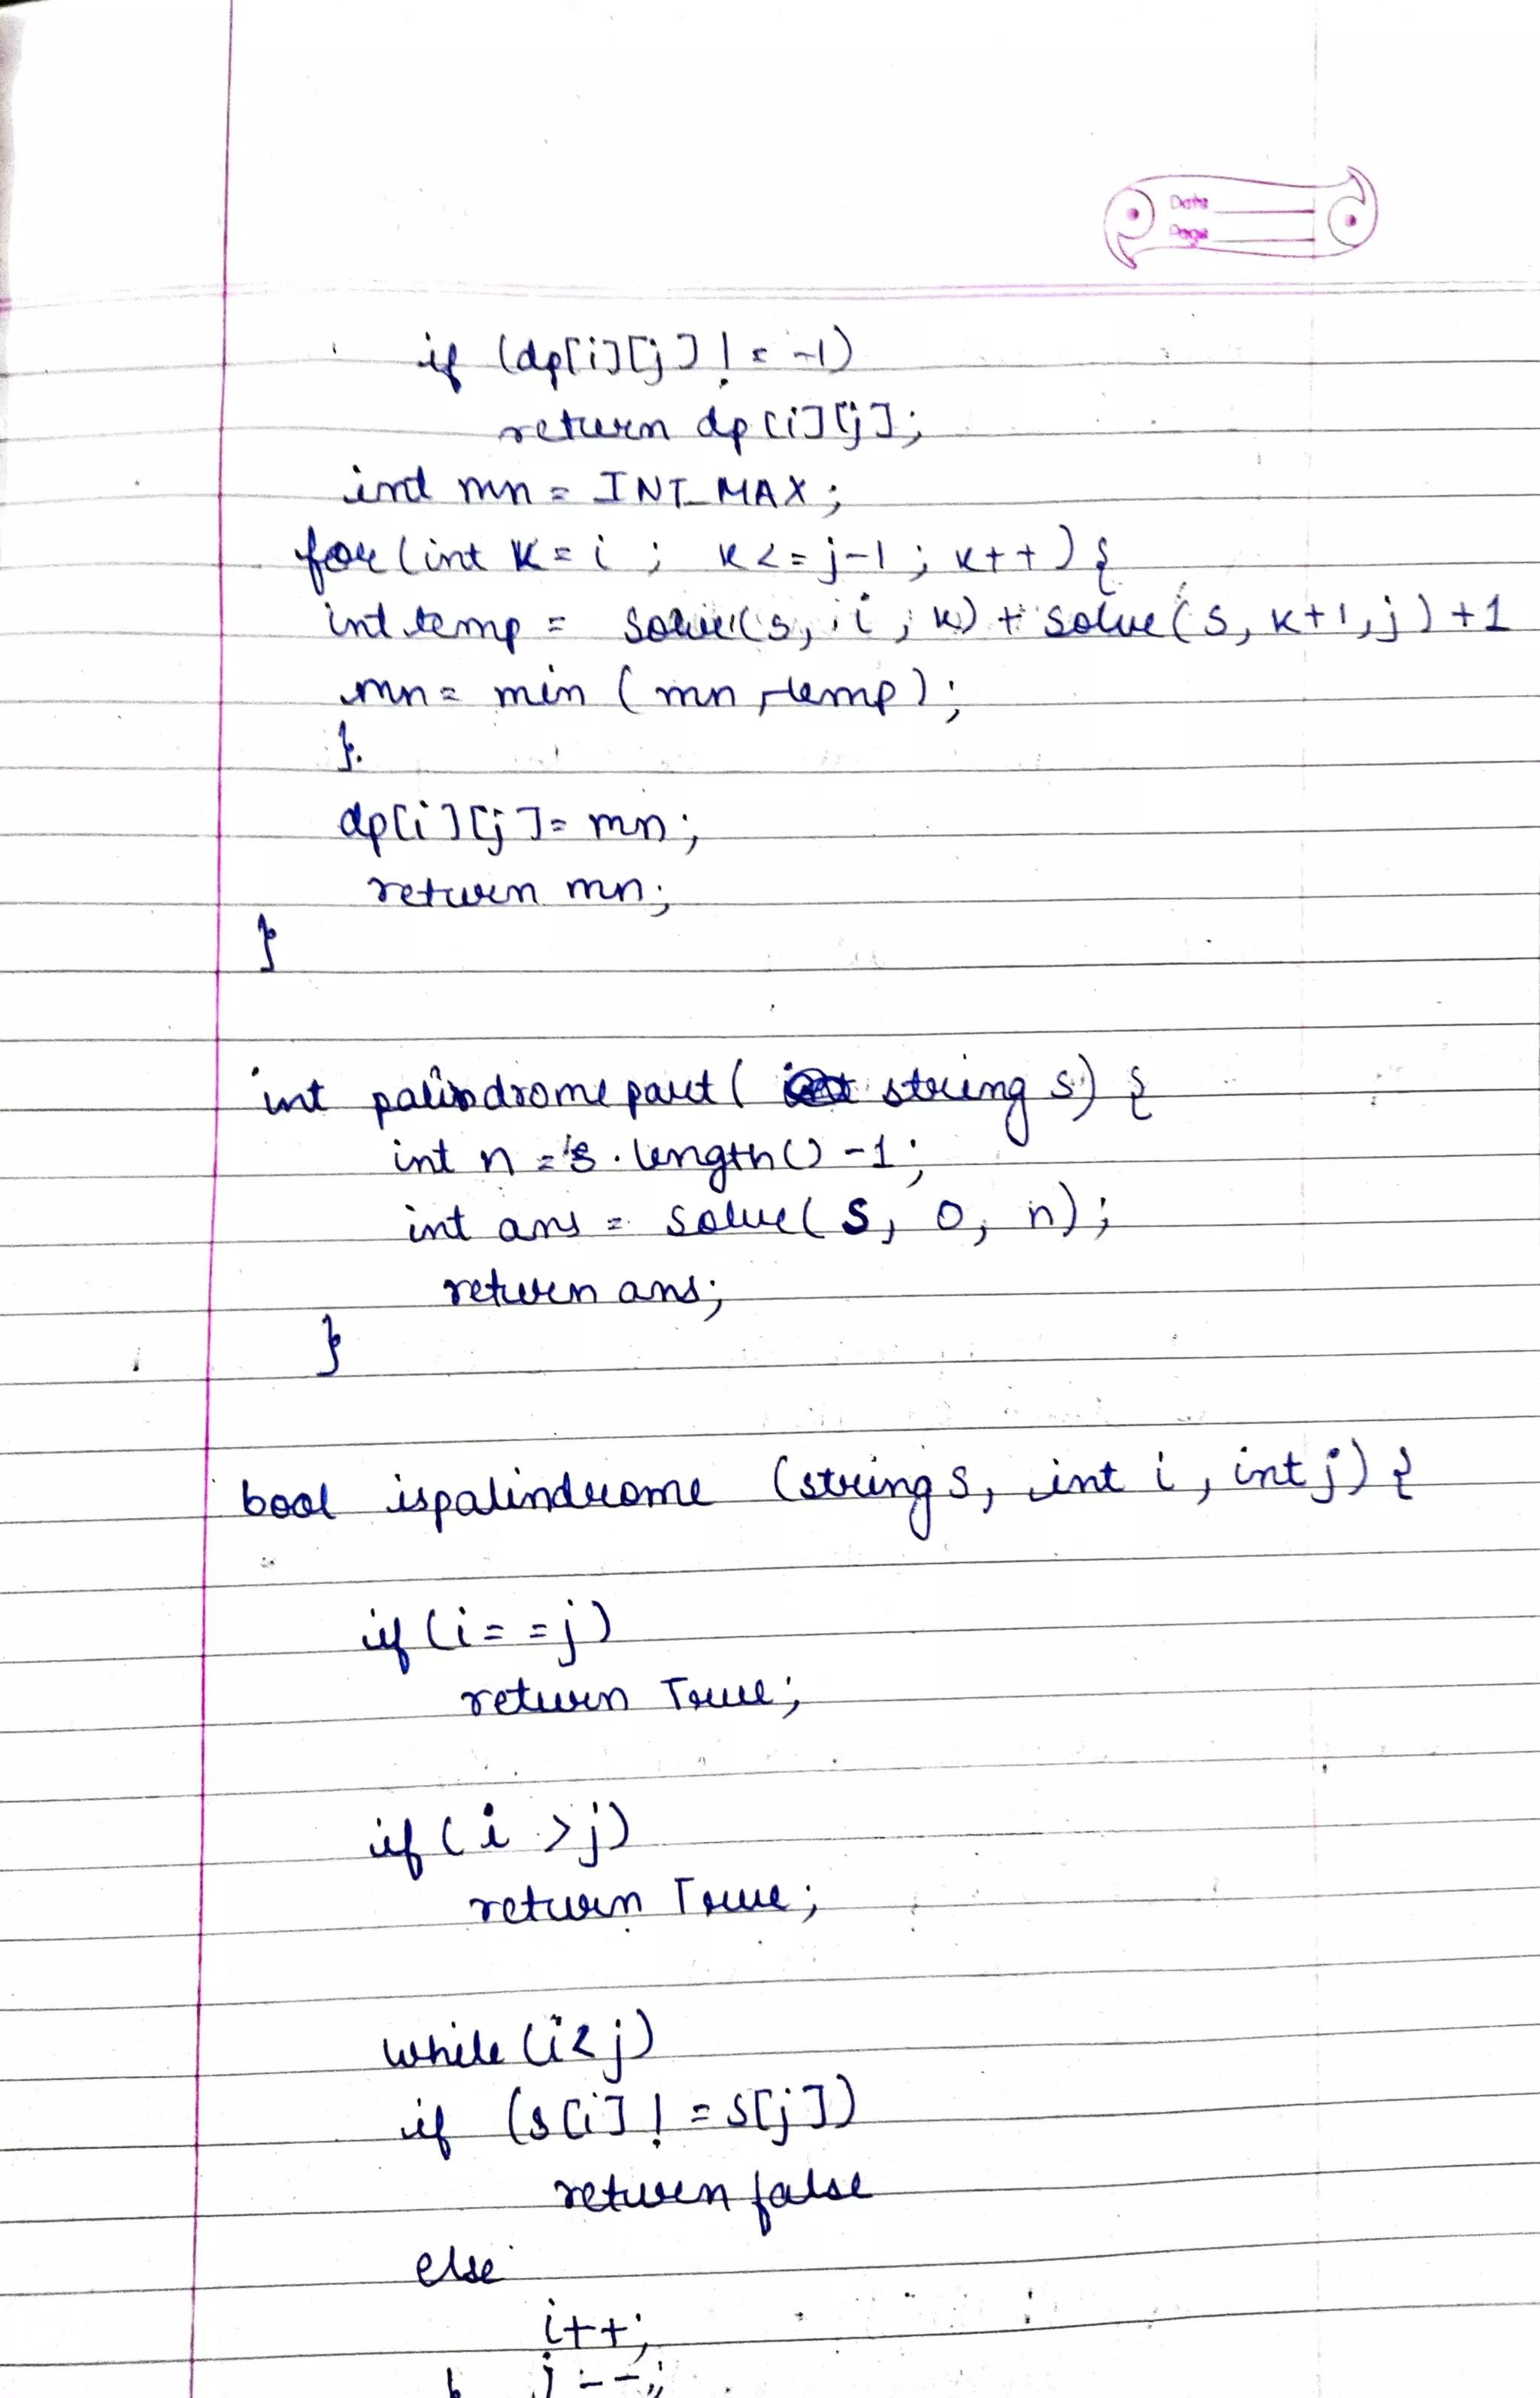 Date
Page
if (dp[i][j] != -1)
return dp[i][j];
int mn = INT_MAX;
for (int k = i ; k <= j-1 ; k++) {
int temp = solve(s, i, k) + solve(s, k+1, j) +1
mn = min (mn, temp);
}
dp[i][j] = mn;
return mn;
}
int palindromepart( string s) {
int n = s.length() -1;
int ans = solve( s, 0, n);
return ans;
}
bool ispalindrome (string s, int i, int j) {
if (i==j)
return True;
if (i >j)
return True;
while (i<j)
if (s[i] != s[j])
return false
else
i++;
} j--;